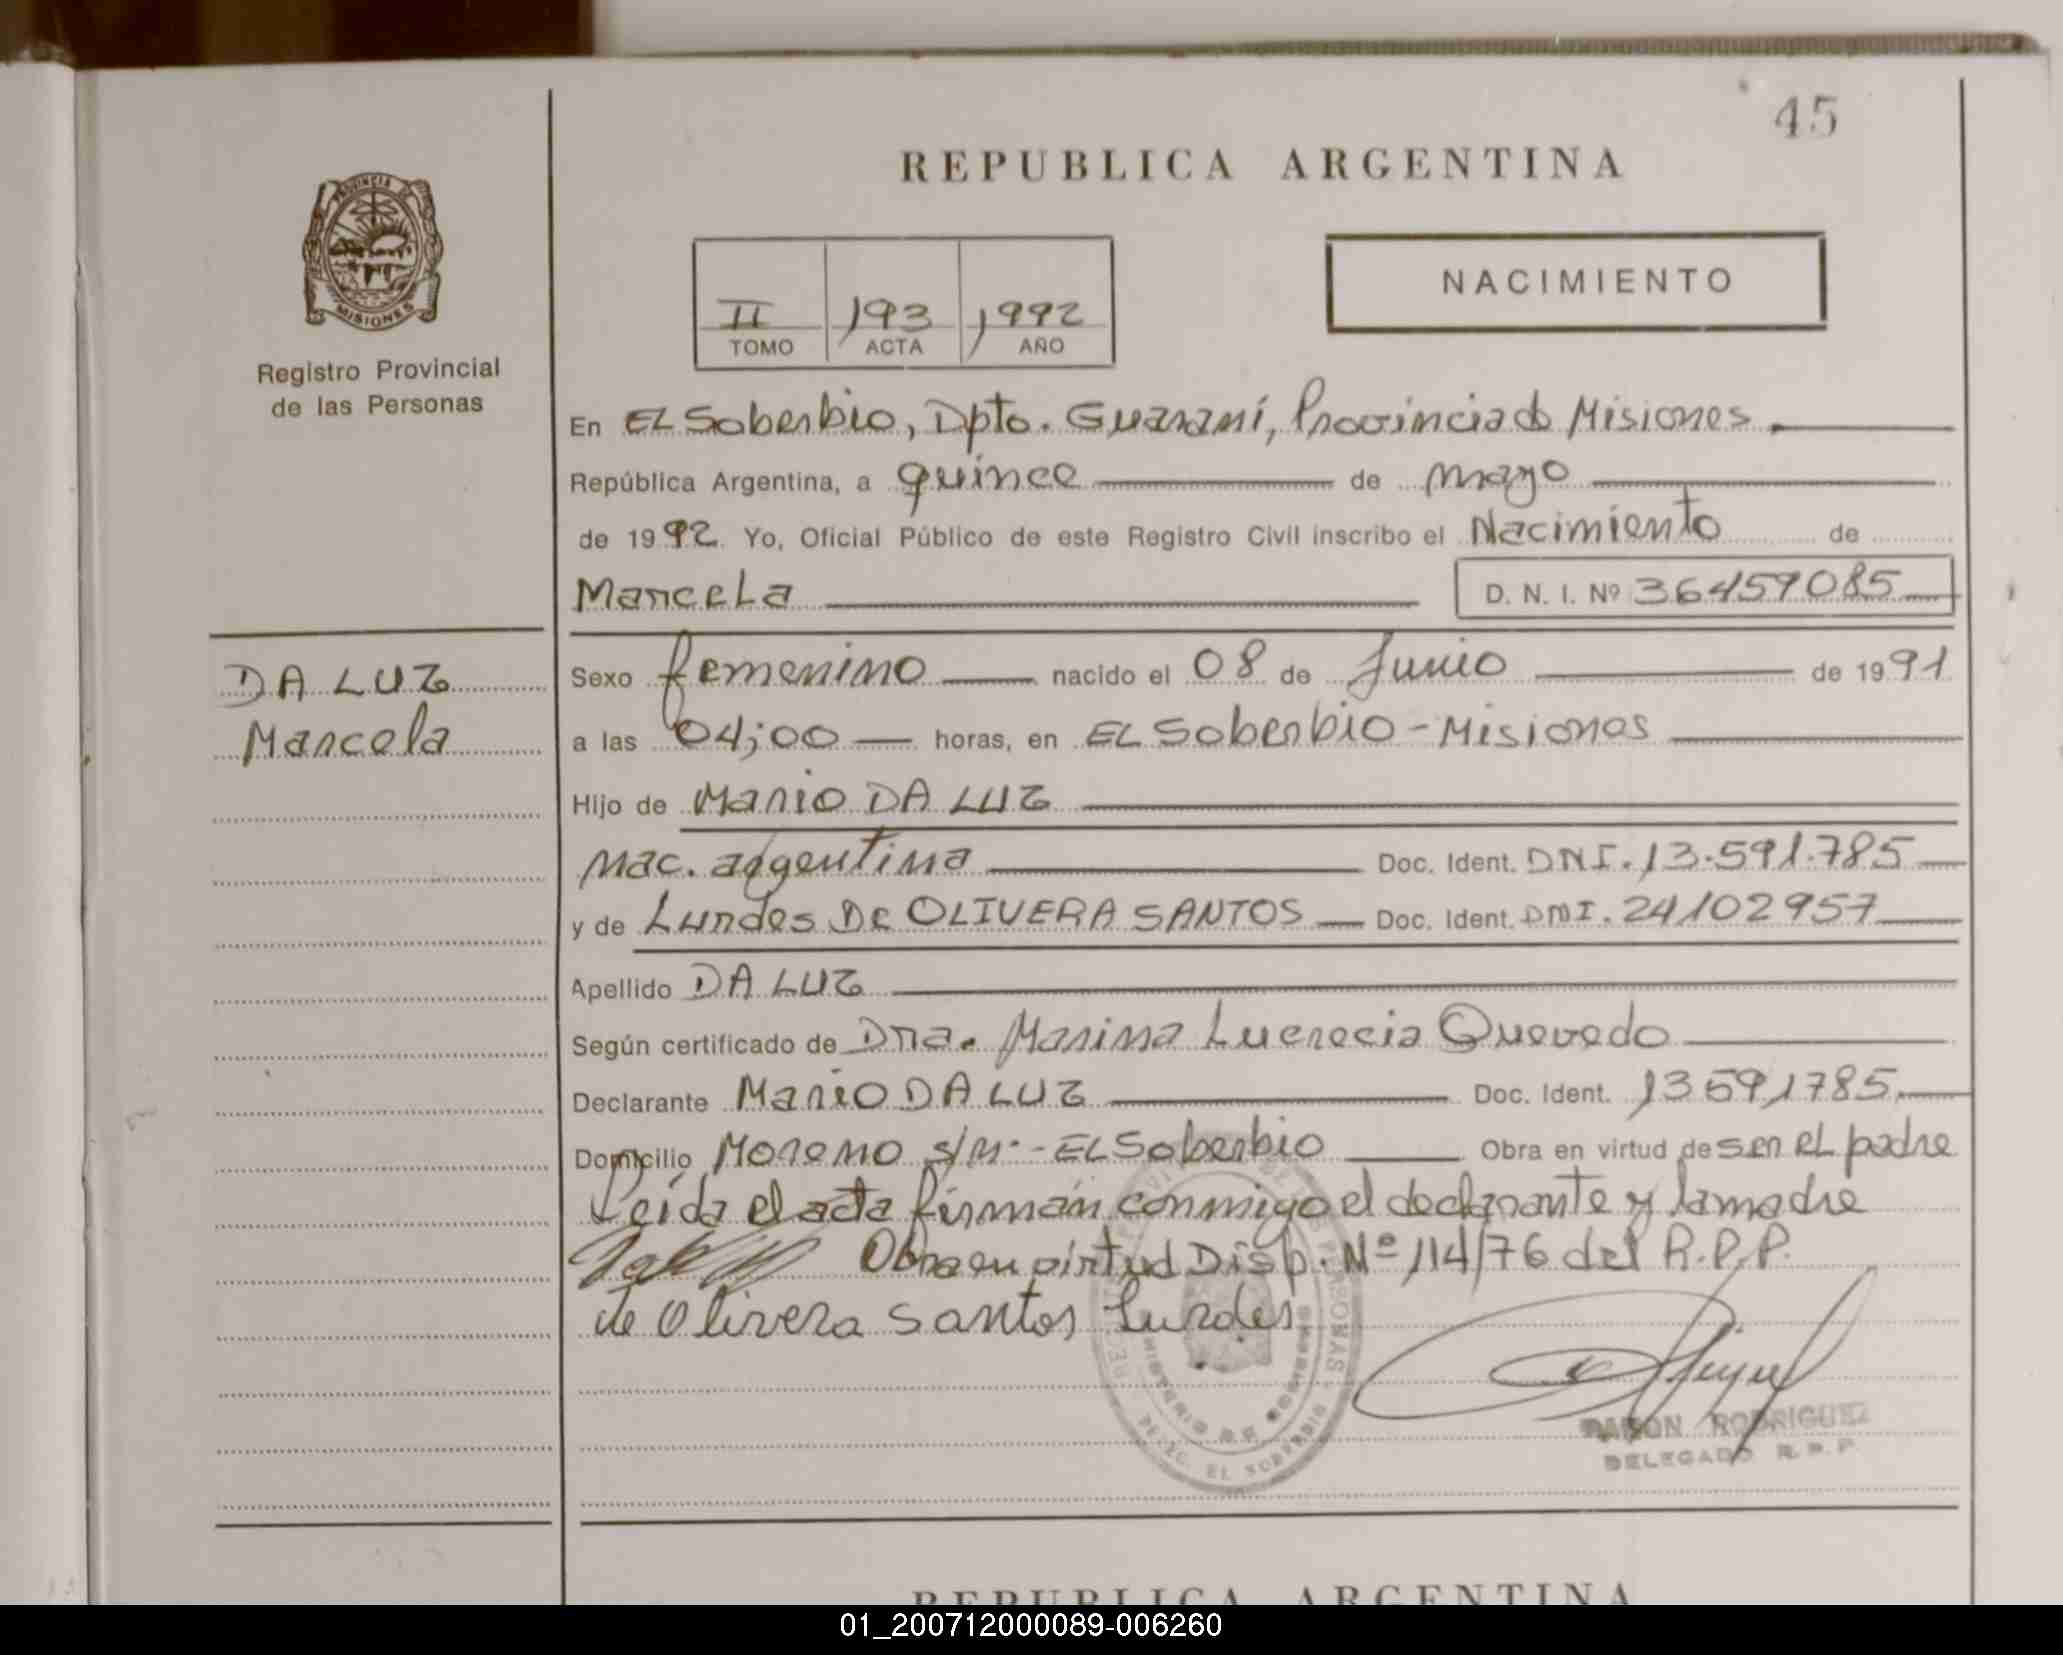 45
REPUBLICA ARGENTINA
PROVINCIA DE
MISIONES
Registro Provincial
de las Personas
NACIMIENTO
II 193 1992
TOMO ACTA AÑO
En EL Soberbio, Dpto. Guaraní, Provincia de Misiones
República Argentina, a quince de mayo
de 1992 Yo, Oficial Público de este Registro Civil inscribo el Nacimiento de
Marcela D. N. I. Nº 36459085
DA LUZ
Marcela
Sexo femenino nacido el 08 de Junio de 1991
a las 04;00 horas, en EL Soberbio - Misiones
Hijo de Mario DA LUZ
nac. argentina Doc. Ident. DNI. 13.591.785
y de Lurdes De OLIVERA SANTOS Doc. Ident. DNI. 24102957
Apellido DA LUZ
Según certificado de Dra. Marina Lucrecia Quevedo
Declarante Mario DA LUZ Doc. Ident. 13591785
Domicilio Moreno s/n. - EL Soberbio Obra en virtud de ser el padre
Leída el acta firman conmigo el declarante y la madre
Obra en virtud Disp. Nº 114/76 del R.P.P.
de Olivera Santos Lurdes
RAMON RODRIGUEZ
DELEGADO R.P.P.
DELEG. EL SOBERBIO
REPUBLICA ARGENTINA
01_200712000089-006260